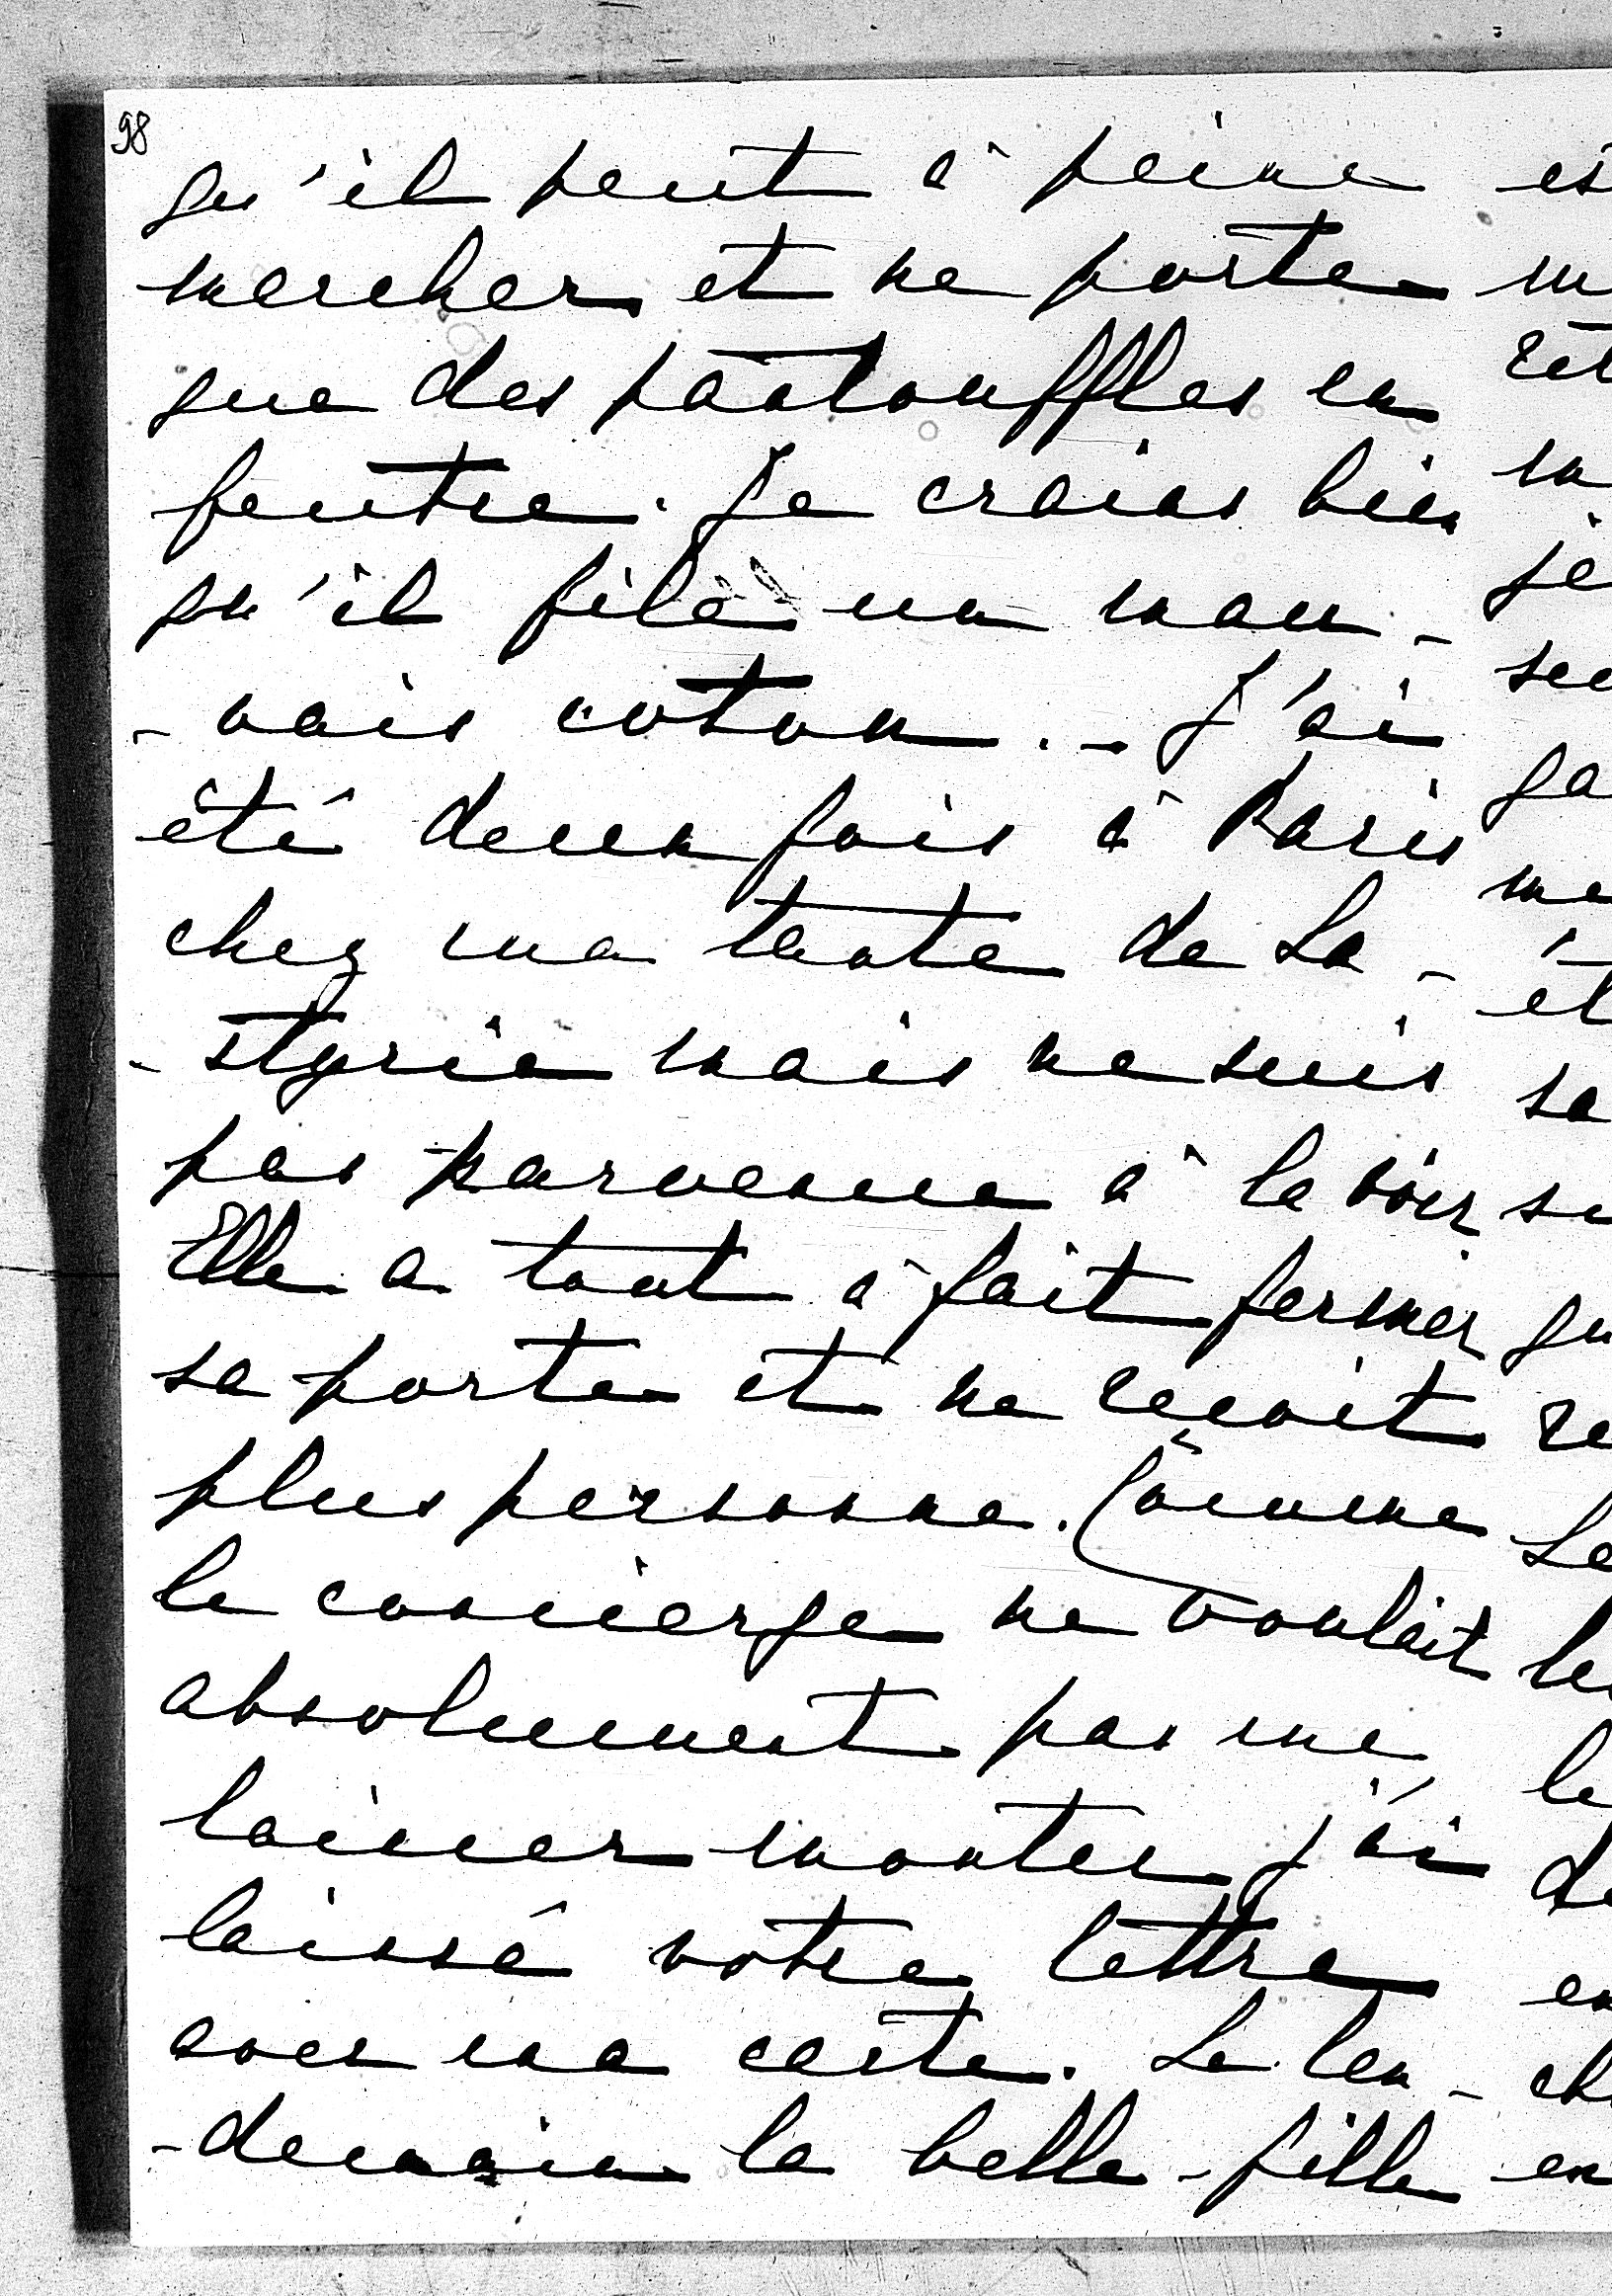 98
qu'il peut à peine
marcher et ne porte
que des pantouffles en
feutre. Je crains bien
qu'il file un mau-
-vais coton. - J'ai
été deux fois à Paris
chez ma tante de La-
-styrie mais ne suis
pas parvenue à la voir
Elle a tout à fait fermer
sa porte et ne reçoit
plus personne. Comme
le concierge ne voulait
absolument pas me
laisser monter j'ai
laissé votre lettre
avec ma carte. Le len-
-demain la belle-fille